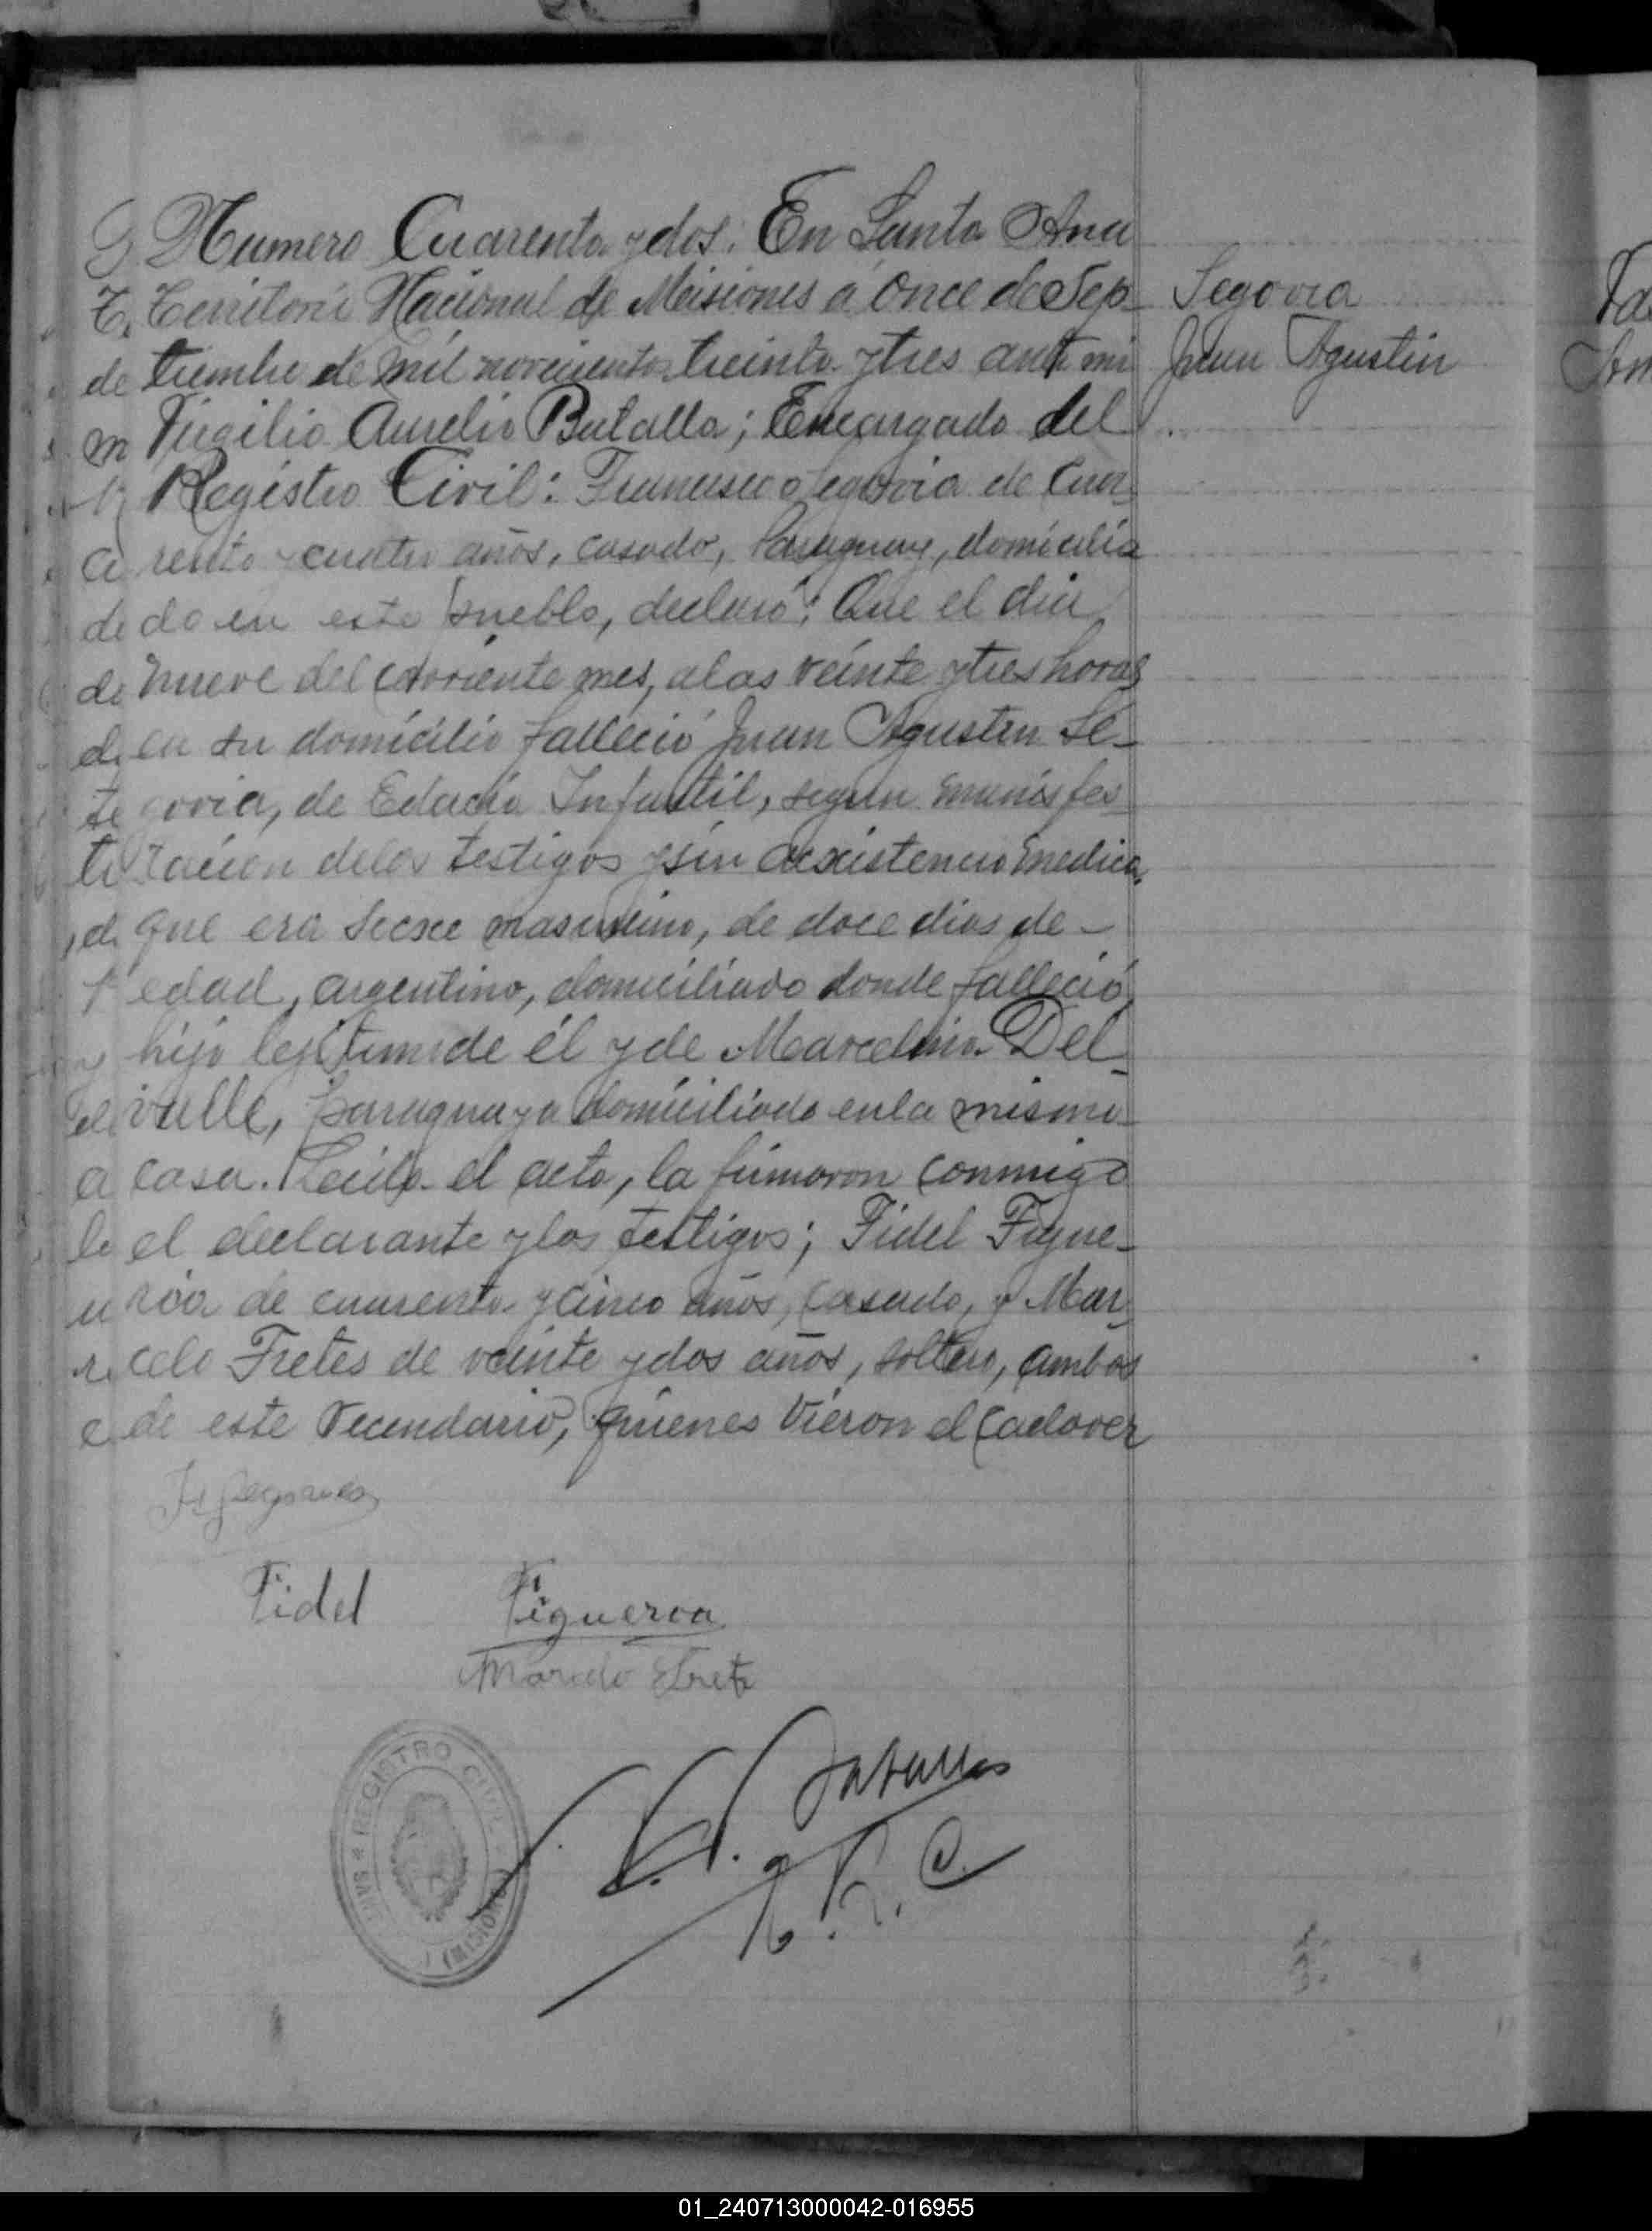 Numero Cuarenta y dos: En Santa Ana
Territorio Nacional de Misiones a Once de Sep-
tiembre de mil novecientos treinta y tres ante mi
Virgilio Aurelio Batalla; Encargado del
Registro Civil: Francisco Segovia de Cua-
renta y cuatro años, casado, Paraguayo, domicilia
do en este pueblo, declaró: Que el dia
nueve del corriente mes, a las veinte y tres horas
en su domicilio falleció Juan Agustin Se-
govia, de Infantil, segun manifes-
tacion de los testigos y sin asistencia medica,
que era secso masculino, de doce dias de -
edad, argentino, domiciliado donde falleció,
hijo legitimo de él y de Marcelina Del-
valle, paraguaya domiciliada en la misma-
casa. Leida el acta, la firmaron conmigo
el declarante y los testigos; Fidel Figue-
roa de cuarenta y cinco años, casado, y Mar-
celo Fretes de veinte y dos años, soltero, ambos
de este Vecindario, quienes vieron el Cadaver
Segovia
Juan Agustin
Fr Segovia
Fidel Figueroa
Marcelo Frete
V. A. Batalla
E. R. C.
REGISTRO CIVIL
(MISIONES)
01_240713000042-016955